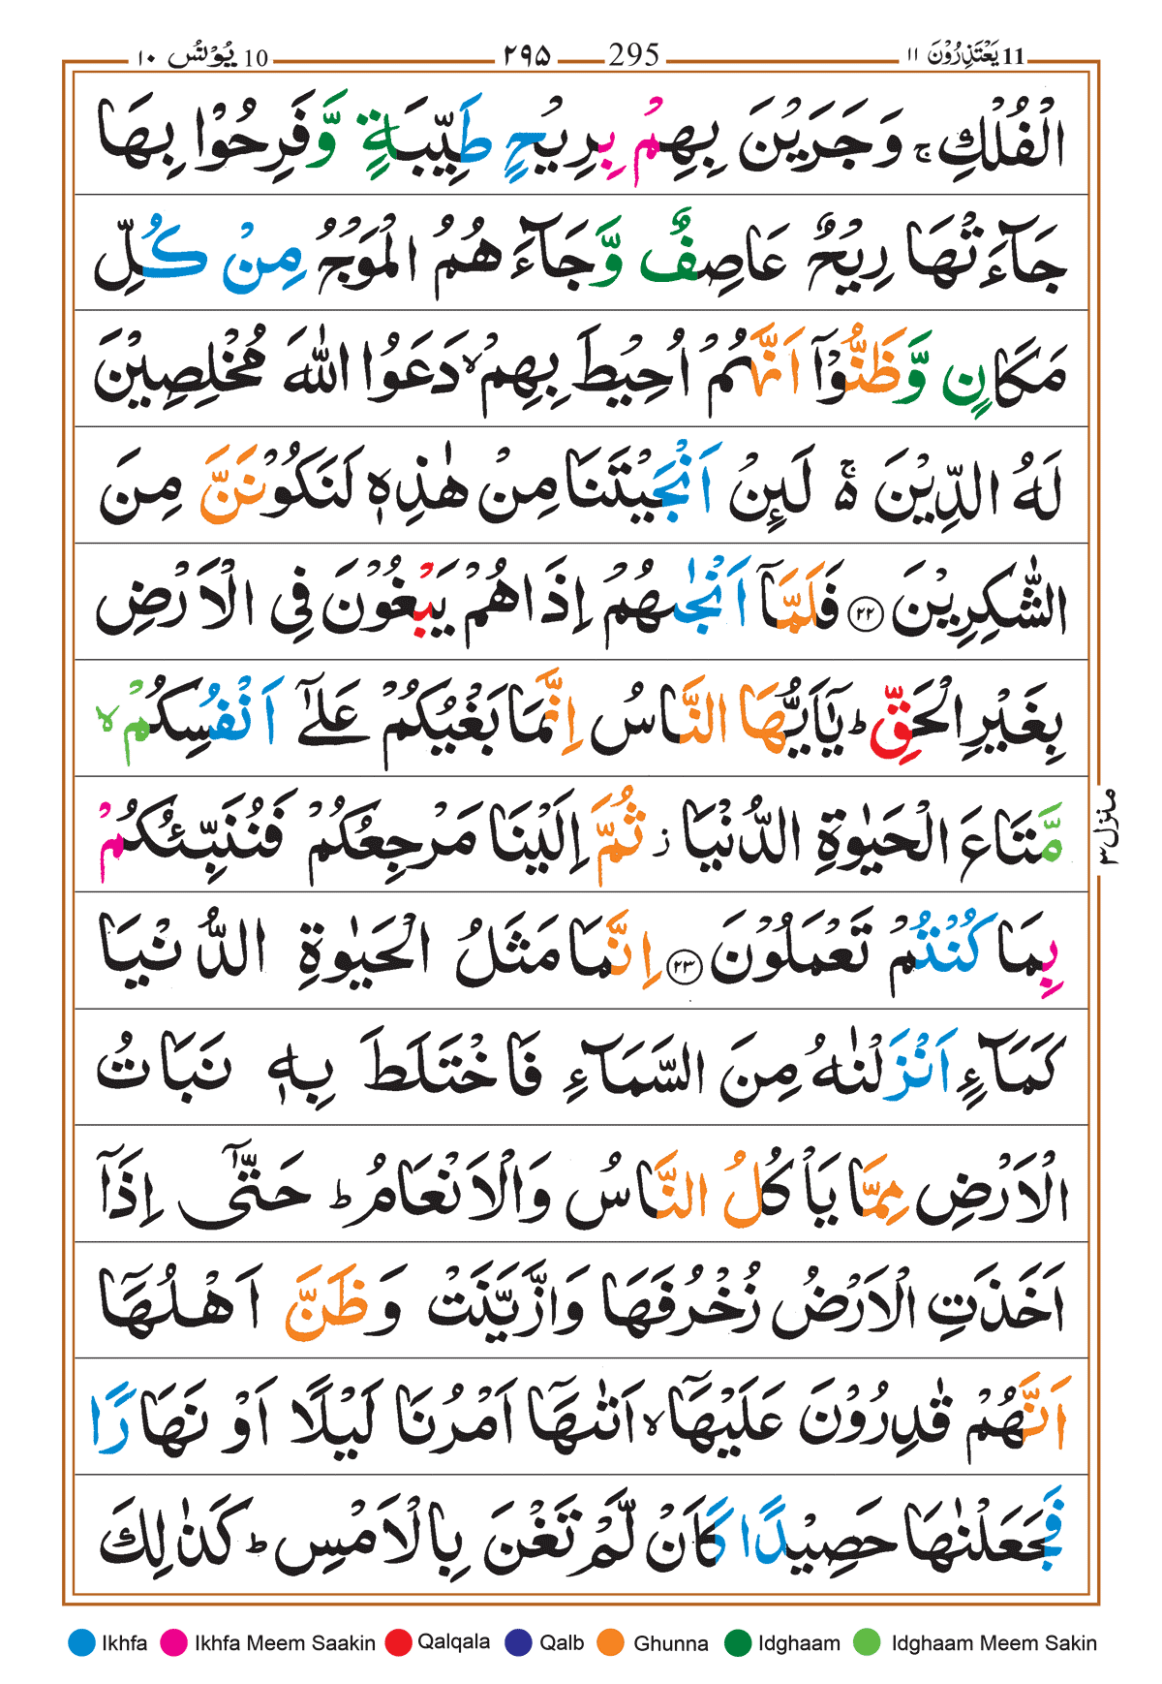 11 يَعْتَذِرُوْنَ ١١
295 ٢٩٥
10 يُوْنُس ١٠
الْفُلْكِ ۚ وَجَرَيْنَ بِهِمْ بِرِيْحٍ طَيِّبَةٍ وَّفَرِحُوْا بِهَا
جَآءَتْهَا رِيْحٌ عَاصِفٌ وَّجَآءَهُمُ الْمَوْجُ مِنْ كُلِّ
مَكَانٍ وَّظَنُّوْٓا اَنَّهُمْ اُحِيْطَ بِهِمْ ۙ دَعَوُا اللّٰهَ مُخْلِصِيْنَ
لَهُ الدِّيْنَ ۚ۬ لَىِٕنْ اَنْجَيْتَنَا مِنْ هٰذِهٖ لَنَكُوْنَنَّ مِنَ
الشّٰكِرِيْنَ ۝٢٢ فَلَمَّآ اَنْجٰىهُمْ اِذَا هُمْ يَبْغُوْنَ فِى الْاَرْضِ
بِغَيْرِ الْحَقِّ ؕ يٰۤاَيُّهَا النَّاسُ اِنَّمَا بَغْيُكُمْ عَلٰٓى اَنْفُسِكُمْ ۙ
مَّتَاعَ الْحَيٰوةِ الدُّنْيَا ز ثُمَّ اِلَيْنَا مَرْجِعُكُمْ فَنُنَبِّئُكُمْ
بِمَا كُنْتُمْ تَعْمَلُوْنَ ۝٢٣ اِنَّمَا مَثَلُ الْحَيٰوةِ الدُّنْيَا
كَمَآءٍ اَنْزَلْنٰهُ مِنَ السَّمَآءِ فَاخْتَلَطَ بِهٖ نَبَاتُ
الْاَرْضِ مِمَّا يَاْكُلُ النَّاسُ وَالْاَنْعَامُ ؕ حَتّٰٓى اِذَآ
اَخَذَتِ الْاَرْضُ زُخْرُفَهَا وَازَّيَّنَتْ وَظَنَّ اَهْلُهَآ
اَنَّهُمْ قٰدِرُوْنَ عَلَيْهَآ ۙ اَتٰىهَآ اَمْرُنَا لَيْلًا اَوْ نَهَارًا
فَجَعَلْنٰهَا حَصِيْدًا كَاَنْ لَّمْ تَغْنَ بِالْاَمْسِ ؕ كَذٰلِكَ
منزل ٣
Ikhfa Ikhfa Meem Saakin Qalqala Qalb Ghunna Idghaam Idghaam Meem Sakin